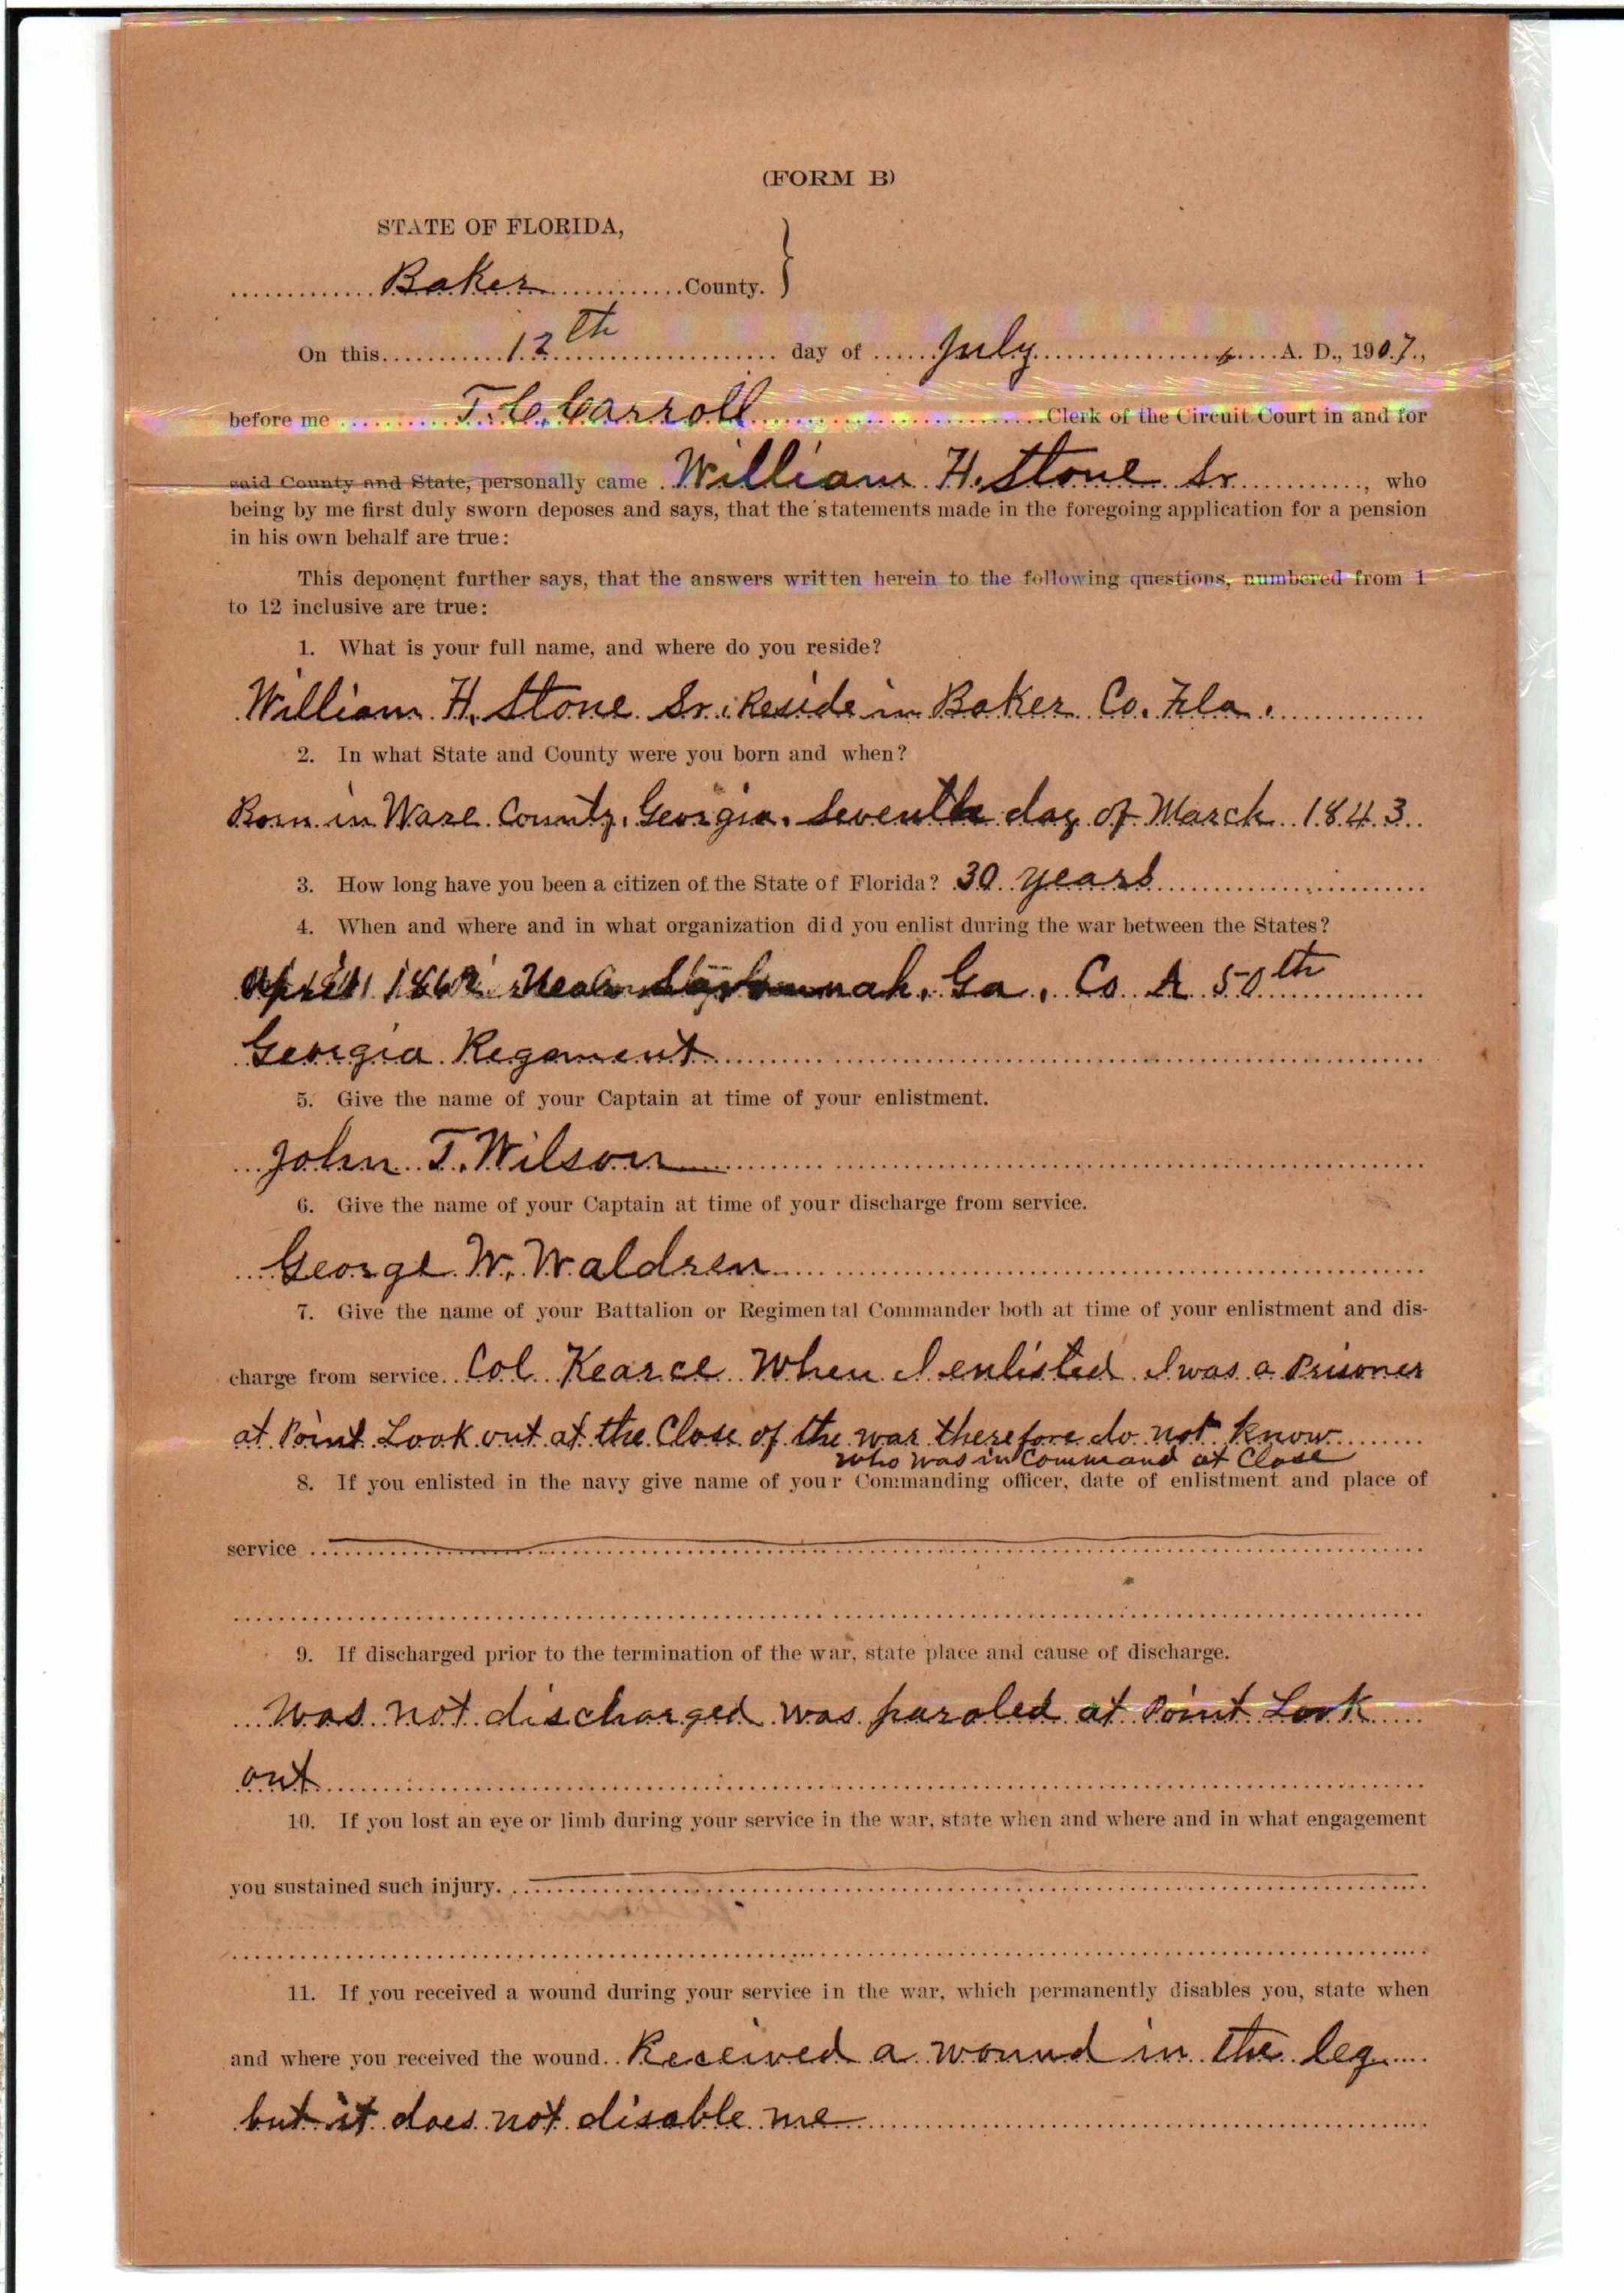 (FORM B)
STATE OF FLORIDA,
Baker County. }
On this 12th day of July A. D., 1907.,
before me T. C. Carroll Clerk of the Circuit Court in and for
said County and State, personally came William H. Stone Sr , who
being by me first duly sworn deposes and says, that the statements made in the foregoing application for a pension
in his own behalf are true:
This deponent further says, that the answers written herein to the following questions, numbered from 1
to 12 inclusive are true:
1. What is your full name, and where do you reside?
William H. Stone Sr. Reside in Baker Co. Fla.
2. In what State and County were you born and when?
Born in Ware County, Georgia. Seventh day of March 1843.
3. How long have you been a citizen of the State of Florida? 30 years
4. When and where and in what organization did you enlist during the war between the States?
April 1862 Near Savannah, Ga, Co A 50th
Georgia Regament
5. Give the name of your Captain at time of your enlistment.
John T. Wilson
6. Give the name of your Captain at time of your discharge from service.
George W. Waldren
7. Give the name of your Battalion or Regimental Commander both at time of your enlistment and dis-
charge from service. Col Kearce When I enlisted I was a Prisoner
at Point Look out at the Close of the war therefore do not know
who was in Command at Close
8. If you enlisted in the navy give name of your Commanding officer, date of enlistment and place of
service
9. If discharged prior to the termination of the war, state place and cause of discharge.
Was not discharged was paroled at Point Look
out
10. If you lost an eye or limb during your service in the war, state when and where and in what engagement
you sustained such injury.
11. If you received a wound during your service in the war, which permanently disables you, state when
and where you received the wound. Received a wound in the leg
but it does not disable me